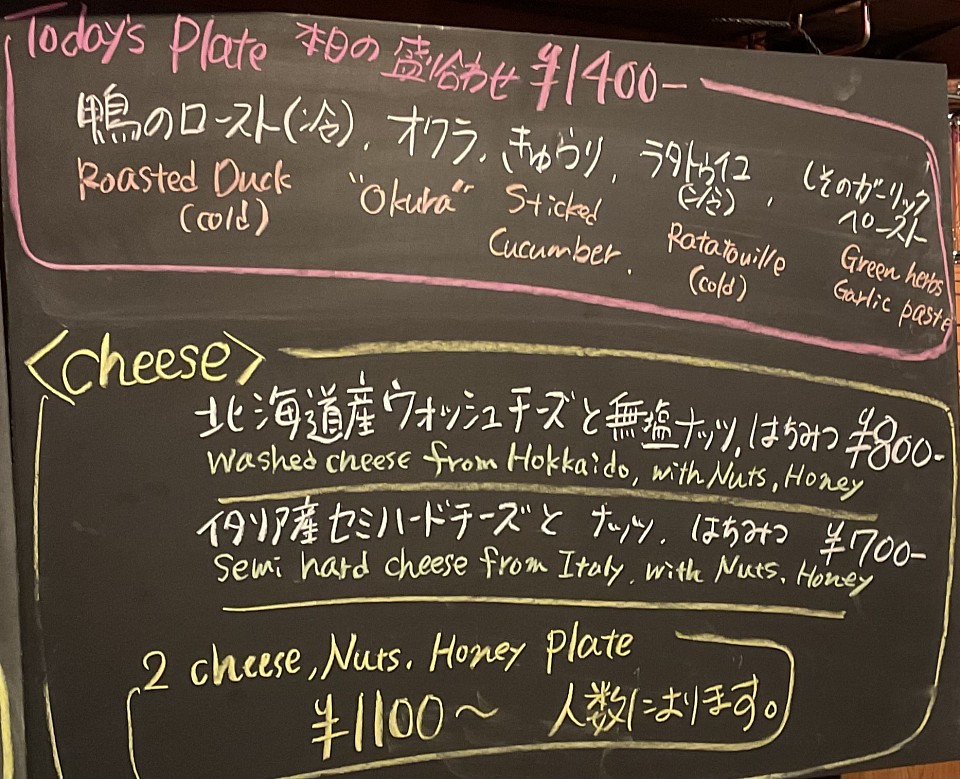 Today's Plate 本日の盛り合わせ ¥1400-
鴨のロースト(冷)、オクラ、きゅうり、ラタトゥイユ(冷)、しそのガーリックペースト
Roasted Duck (cold) "Okura" Sticked Cucumber. Ratatouille (cold) Green herbs Garlic paste
<cheese>
北海道産ウォッシュチーズと無塩ナッツ、はちみつ ¥800-
Washed cheese from Hokkaido, with Nuts, Honey
イタリア産セミハードチーズと ナッツ、はちみつ ¥700-
Semi hard cheese from Italy, with Nuts, Honey
2 cheese, Nuts, Honey Plate
¥1100～ 人数によります。